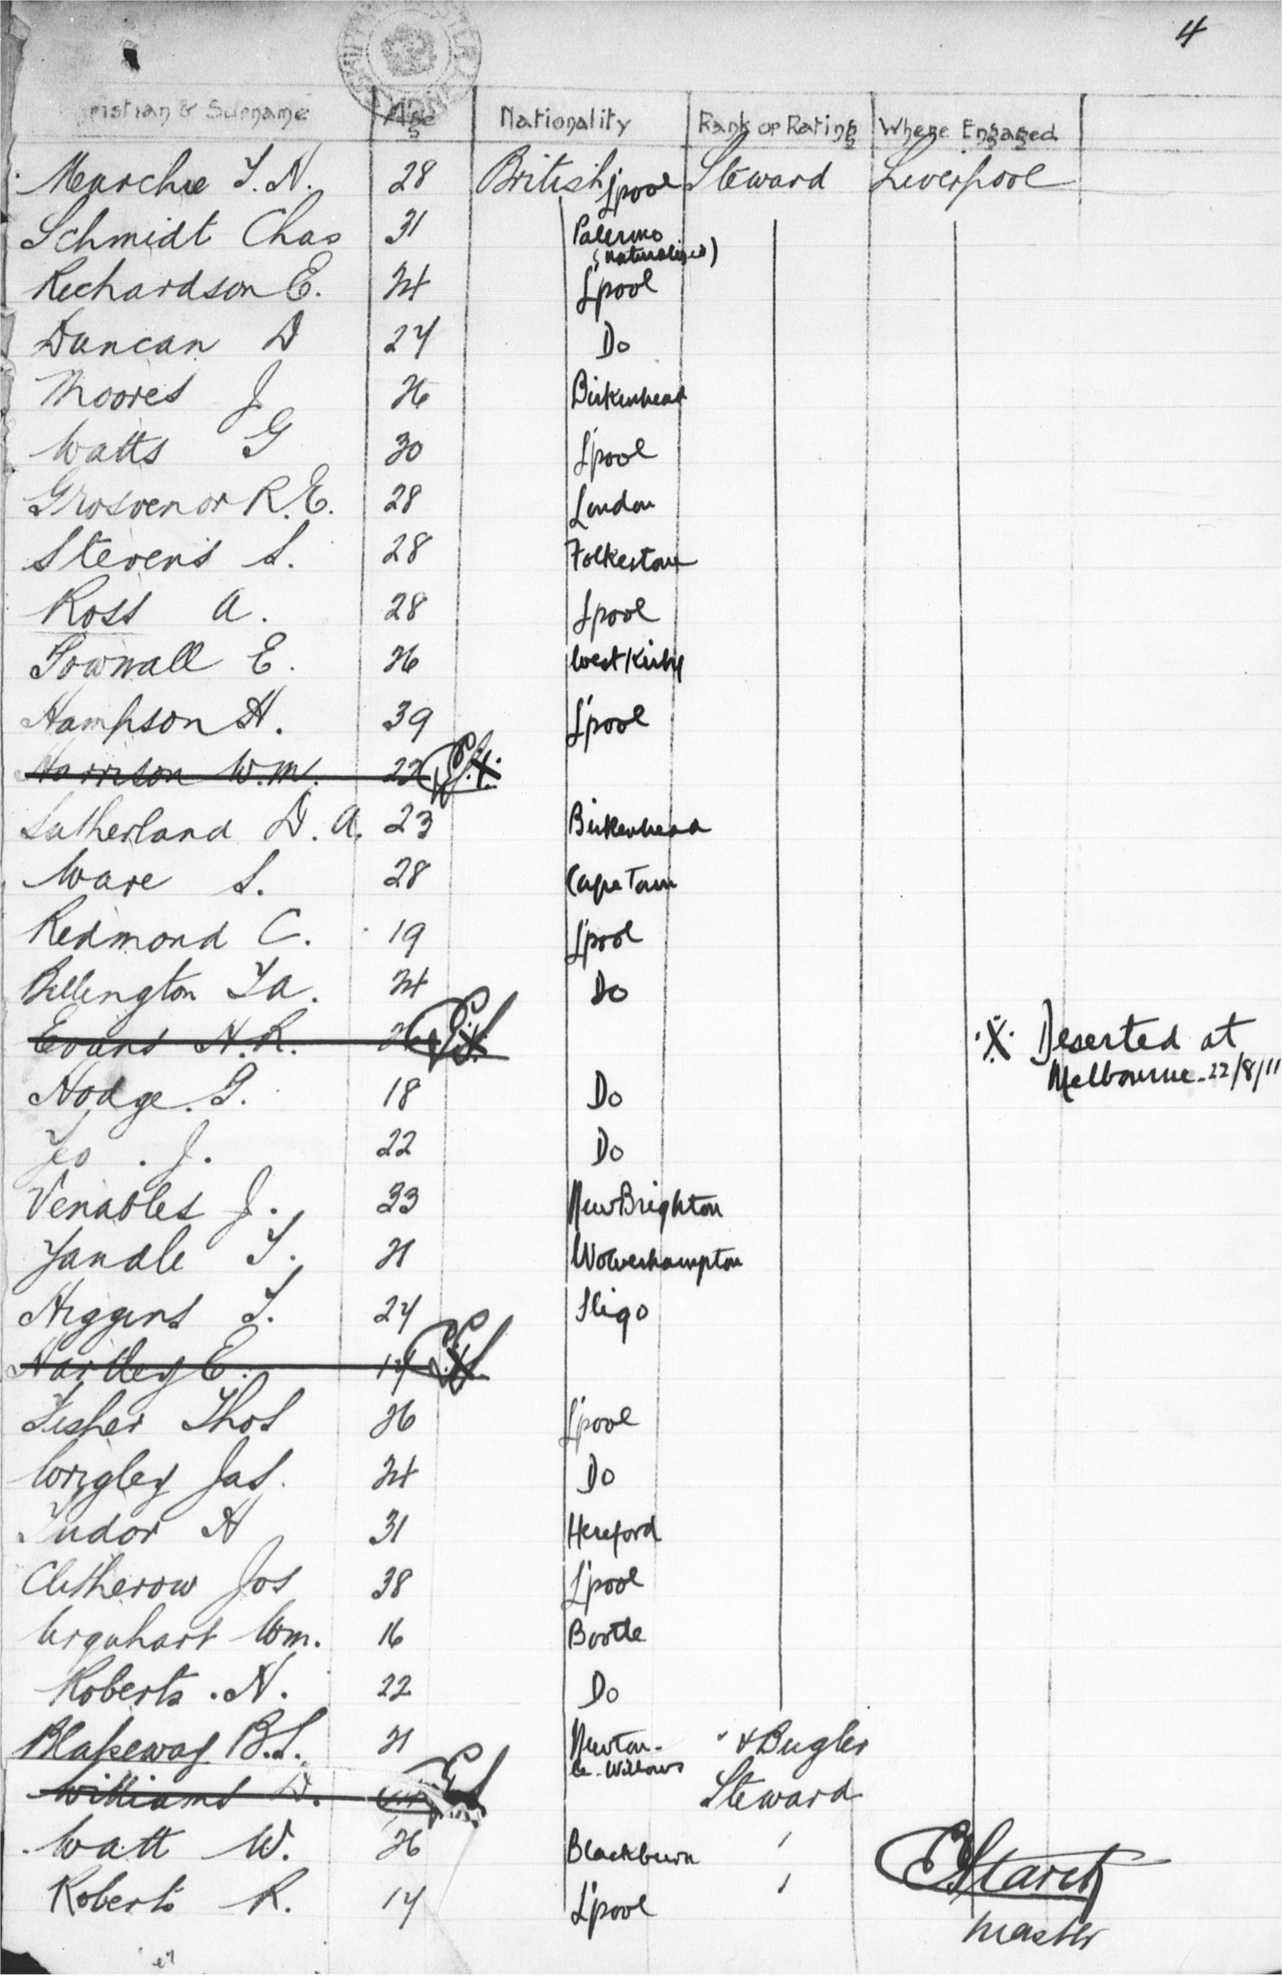 4
Christian & Surname Age Nationality Rank or Rating Where Engaged
T. N. 28 British L'pool Steward Liverpool
Schmidt Chas 31 Palermo
(naturalised)
Richardson E. 24 L'pool
Duncan D 27 Do
Moores J 26 Birkenhead
Watts G 30 L'pool
Grosvenor R. E. 28 London
Stevens S. 28 Folkestone
Ross A. 28 L'pool
Pownall E. 26 West Kirby
Hampson H. 39 L'pool
Harrison W.m. 22 X
Sutherland D. A. 23 Birkenhead
Ware S. 28 Cape Town
Redmond C. 19 L'pool
Billington T A. 24 Do
Evans H. R. 26 X
X Deserted at
Melbourne. 22/8/11
Hodge. G. 18 Do
Yeo . J. 22 Do
Venables J. 33 New Brighton
Yandle T. 21 Wolverhampton
Higgins T. 27 Sligo
Hartley E. 17 X
Fisher Thos 26 L'pool
Wrigley Jas. 24 Do
Tudor H 31 Hereford
Clitherow Jos 38 L'pool
Urquhart Wm. 16 Bootle
Roberts . N. 22 Do
Blakeway B.S. 21 Newton- " & Bugler
le-Willows
Williams D. Steward
Watt W. 26 Blackburn '
Roberts R. 17 L'pool '
Master